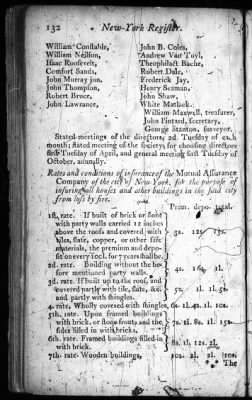 132 New-York Register.
William Constable, John B. Coles,
William Neilson, Andrew Van Tuyl,
Isaac Roosevelt, Theophilact Bache,
Comfort Sands, Robert Dale,
John Murray jun. Frederick Jay,
John Thompson, Henry Seaman,
Robert Bruce, John Shaw,
John Lawrance, White Matlack.
William Maxwell, treasurer,
John Pintard, secretary,
George Stanton, surveyor.
Stated meetings of the directors, 2d. Tuesday of each
month; stated meeting of the society, for choosing directors
first Tuesday of April, and general meeting first Tuesday of
October, annually.
Rates and conditions of insurances of the Mutual Assurance
Company of the city of New York, for the purpose of
insuring houses and other buildings in the said city
from loss by fire.
Prem. depo. total.
1st, rate. If built of brick or stone
with party walls carried 12 inches
above the roofs and covered with
tiles, slate, copper, or other safe
materials, the premium and depo-
sit on every 100l. for 7 years shall be
3s. 12s. 15s.
2d. rate. Building without the be-
fore mentioned party walls.
4s. 16s. 1l.
3d. rate. If built up to the roof, and
covered partly with tile, slate, &c.
and partly with shingles.
5s. 1l. 1l. 5s.
4. rate, Wholly covered with shingles,
5th. rate. Upon framed buildings
with brick, or stone fronts and the
sides filled in with bricks.
6th. rate. Framed buildings filled in
with brick.
7th. rate. Wooden buildings, 10s. 2l. 2l. 10s.
The